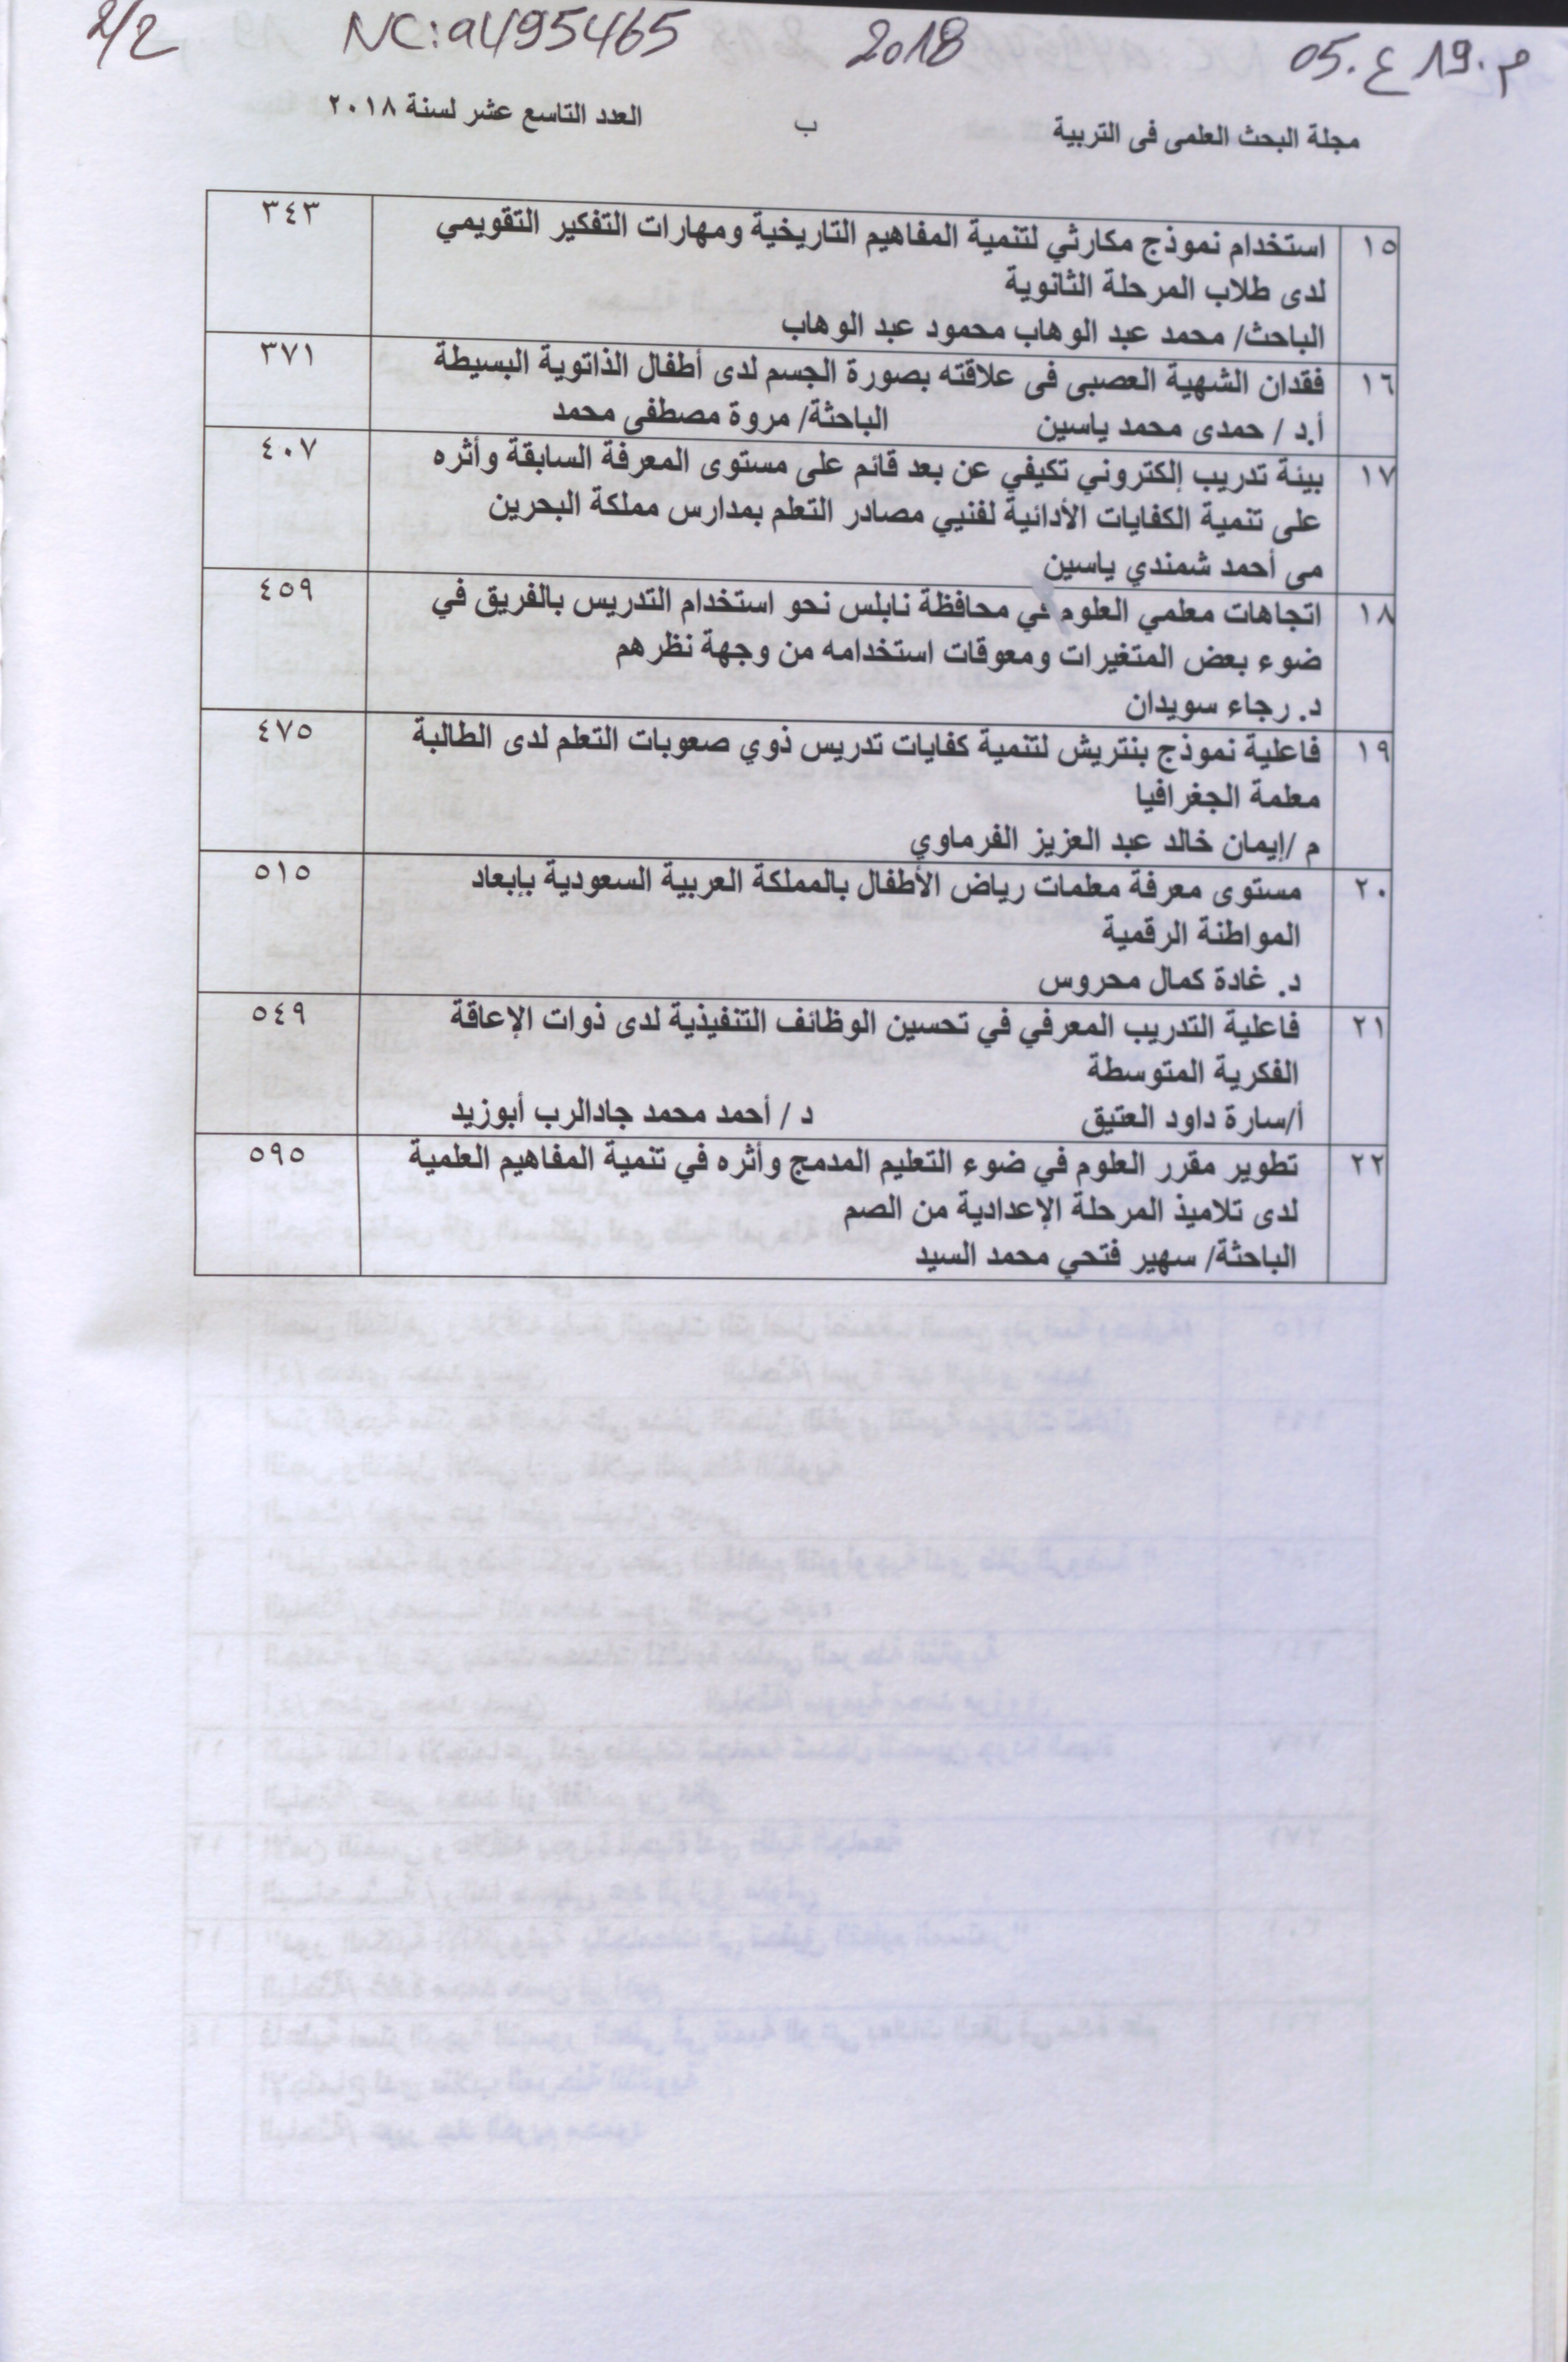 م.19 ع.05 2018 NC:a495465 2/2
مجلة البحث العلمى فى التربية ب العدد التاسع عشر لسنة ٢٠١٨
١٥ استخدام نموذج مكارثي لتنمية المفاهيم التاريخية ومهارات التفكير التقويمي ٣٤٣
لدى طلاب المرحلة الثانوية
الباحث/ محمد عبد الوهاب محمود عبد الوهاب
١٦ فقدان الشهية العصبى فى علاقته بصورة الجسم لدى أطفال الذاتوية البسيطة ٣٧١
أ.د / حمدى محمد ياسين الباحثة/ مروة مصطفى محمد
١٧ بيئة تدريب إلكتروني تكيفي عن بعد قائم على مستوى المعرفة السابقة وأثره ٤٠٧
على تنمية الكفايات الأدائية لفنيي مصادر التعلم بمدارس مملكة البحرين
مى أحمد شمندي ياسين
١٨ اتجاهات معلمي العلوم في محافظة نابلس نحو استخدام التدريس بالفريق في ٤٥٩
ضوء بعض المتغيرات ومعوقات استخدامه من وجهة نظرهم
د. رجاء سويدان
١٩ فاعلية نموذج بنتريش لتنمية كفايات تدريس ذوي صعوبات التعلم لدى الطالبة ٤٧٥
معلمة الجغرافيا
م /إيمان خالد عبد العزيز الفرماوي
٢٠ مستوى معرفة معلمات رياض الأطفال بالمملكة العربية السعودية بإبعاد ٥١٥
المواطنة الرقمية
د. غادة كمال محروس
٢١ فاعلية التدريب المعرفي في تحسين الوظائف التنفيذية لدى ذوات الإعاقة ٥٤٩
الفكرية المتوسطة
أ/سارة داود العتيق د / أحمد محمد جادالرب أبوزيد
٢٢ تطوير مقرر العلوم في ضوء التعليم المدمج وأثره في تنمية المفاهيم العلمية ٥٩٥
لدى تلاميذ المرحلة الإعدادية من الصم
الباحثة/ سهير فتحي محمد السيد